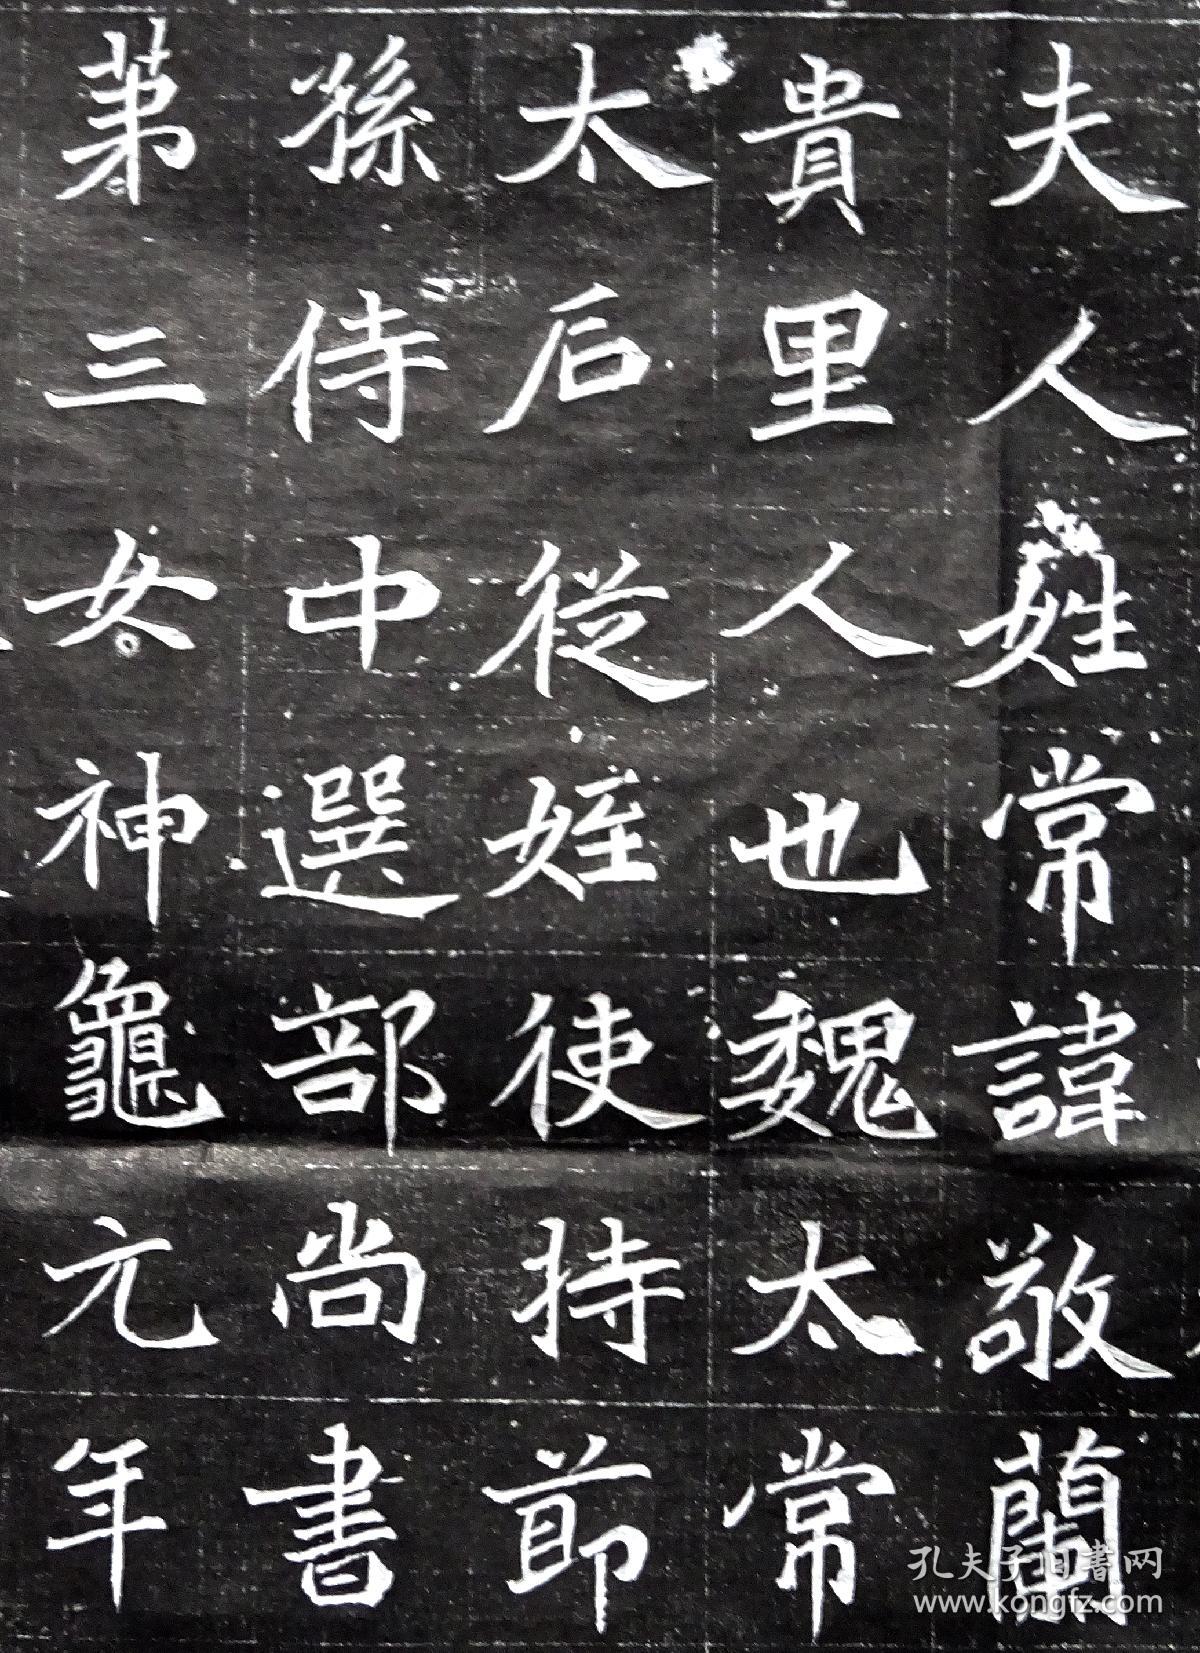 夫人姓常諱敬蘭
貴里人也魏太常
太后從姪使持節
孫侍中選部尚書
第三女神龜元年
孔夫子旧書网
www.kongfz.com